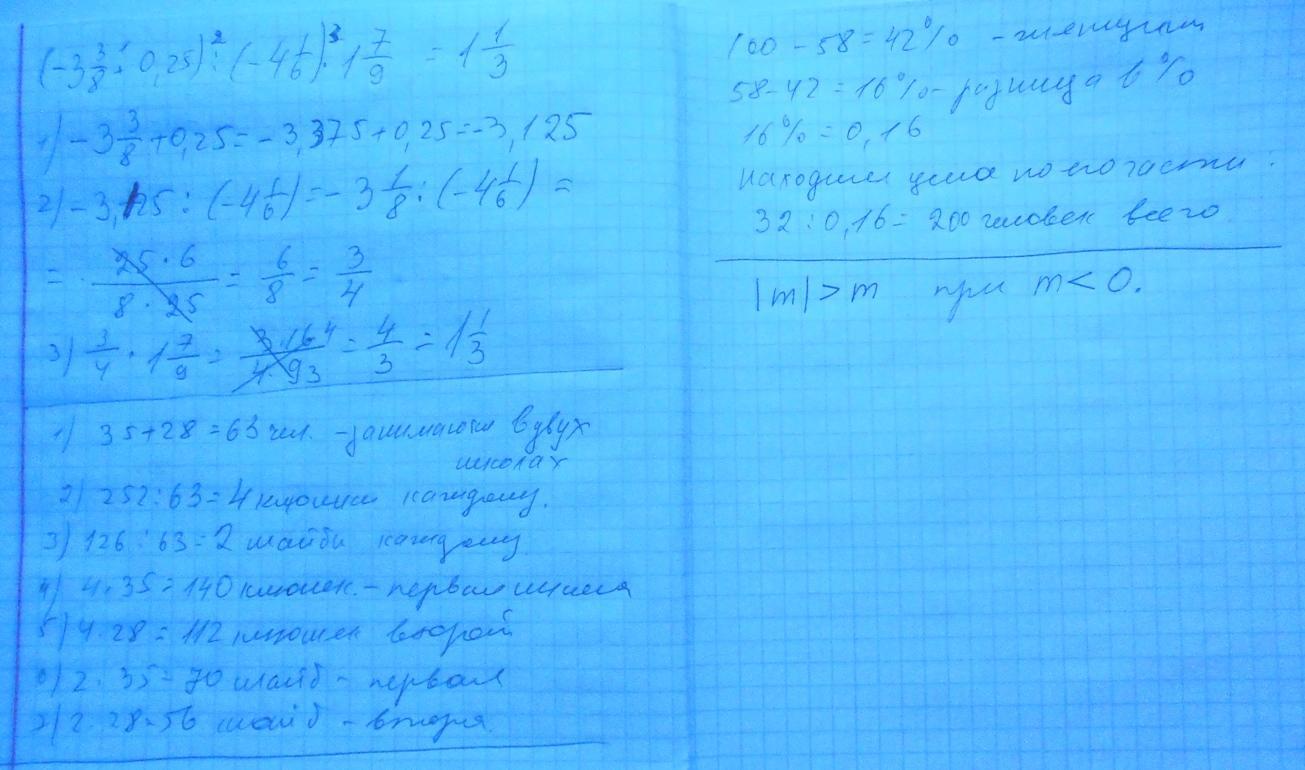 (-3 3/8 + 0,25) : (-4 1/6) · 1 7/9 = 1 1/3
1) -3 3/8 + 0,25 = -3,375 + 0,25 = -3,125
2) -3,125 : (-4 1/6) = -3 1/8 : (-4 1/6) =
= 25·6 / 8·25 = 6/8 = 3/4
3) 3/4 · 1 7/9 = 3·16 4 / 4·9 3 = 4/3 = 1 1/3
1) 35+28=63 чел. - занимаются в двух
школах
2) 252:63=4 клюшки каждому.
3) 126:63=2 шайбы каждому
4) 4·35=140 клюшек - первая школа
5) 4·28=112 клюшек второй
6) 2·35=70 шайб - первая
7) 2·28=56 шайб - вторая
100-58=42% - женщины
58-42=16% - разница в %
16%=0,16
находим целое по его части:
32:0,16=200 человек всего
|m|>m при m<0.